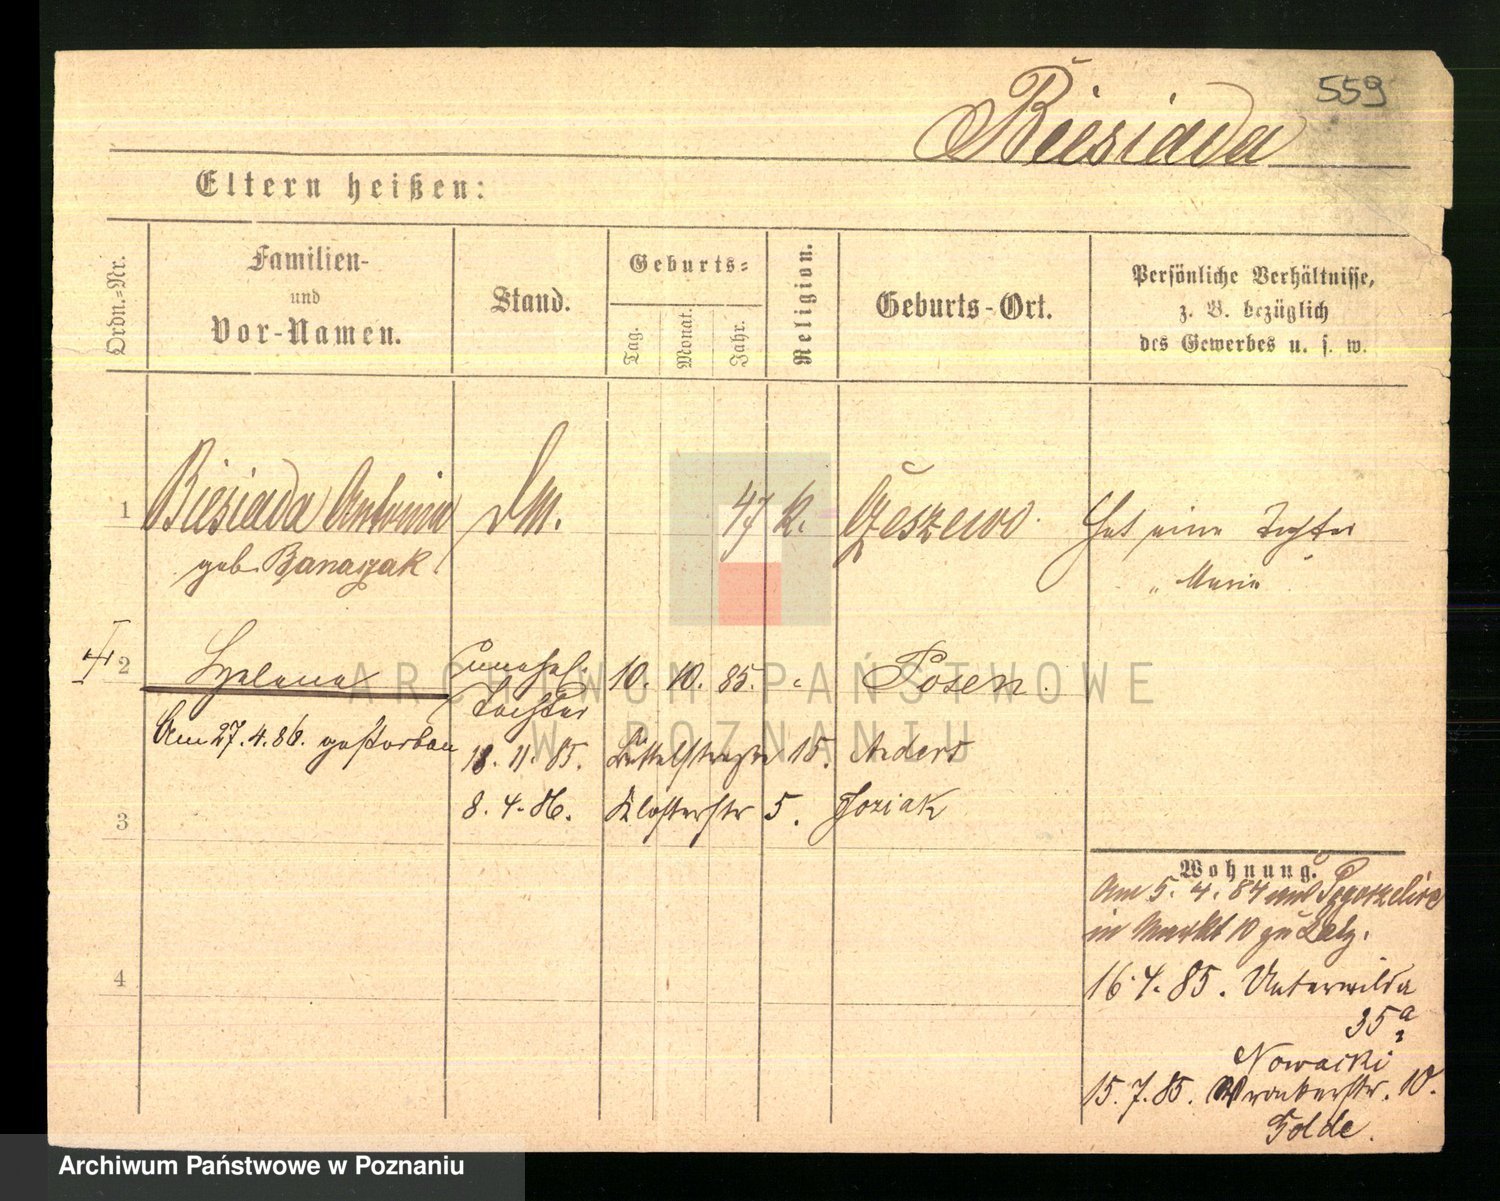 559
Biesiada
Eltern heißen:
Ordn.-Nr.
Familien-
und
Vor-Namen.
Stand.
Geburts-
Tag.
Monat.
Jahr.
Religion.
Geburts-Ort.
Persönliche Verhältnisse,
z. B. bezüglich
des Gewerbes u. s. w.
1 Biesiada Antonia 47 K. Czeszewo. Hat eine Tochter
geb. Banaszak "Maria"
2 Helena unehel. 10. 10. 85. Posen.
Tochter
Am 27.4.86. gestorben
18. 11. 85. Büttelstraße 15. Anders
3 8. 4. 86. Klosterstr 5.
Wohnung.
Am 5. 4. 84 aus Pogorzelice
in Markt 10 zu
4 16. 4. 85. Unterwilda
35a
Nowacki
15. 7. 85. Wronkerstr. 10.
Tolde.
ARCHIWUM PAŃSTWOWE
W POZNANIU
Archiwum Państwowe w Poznaniu